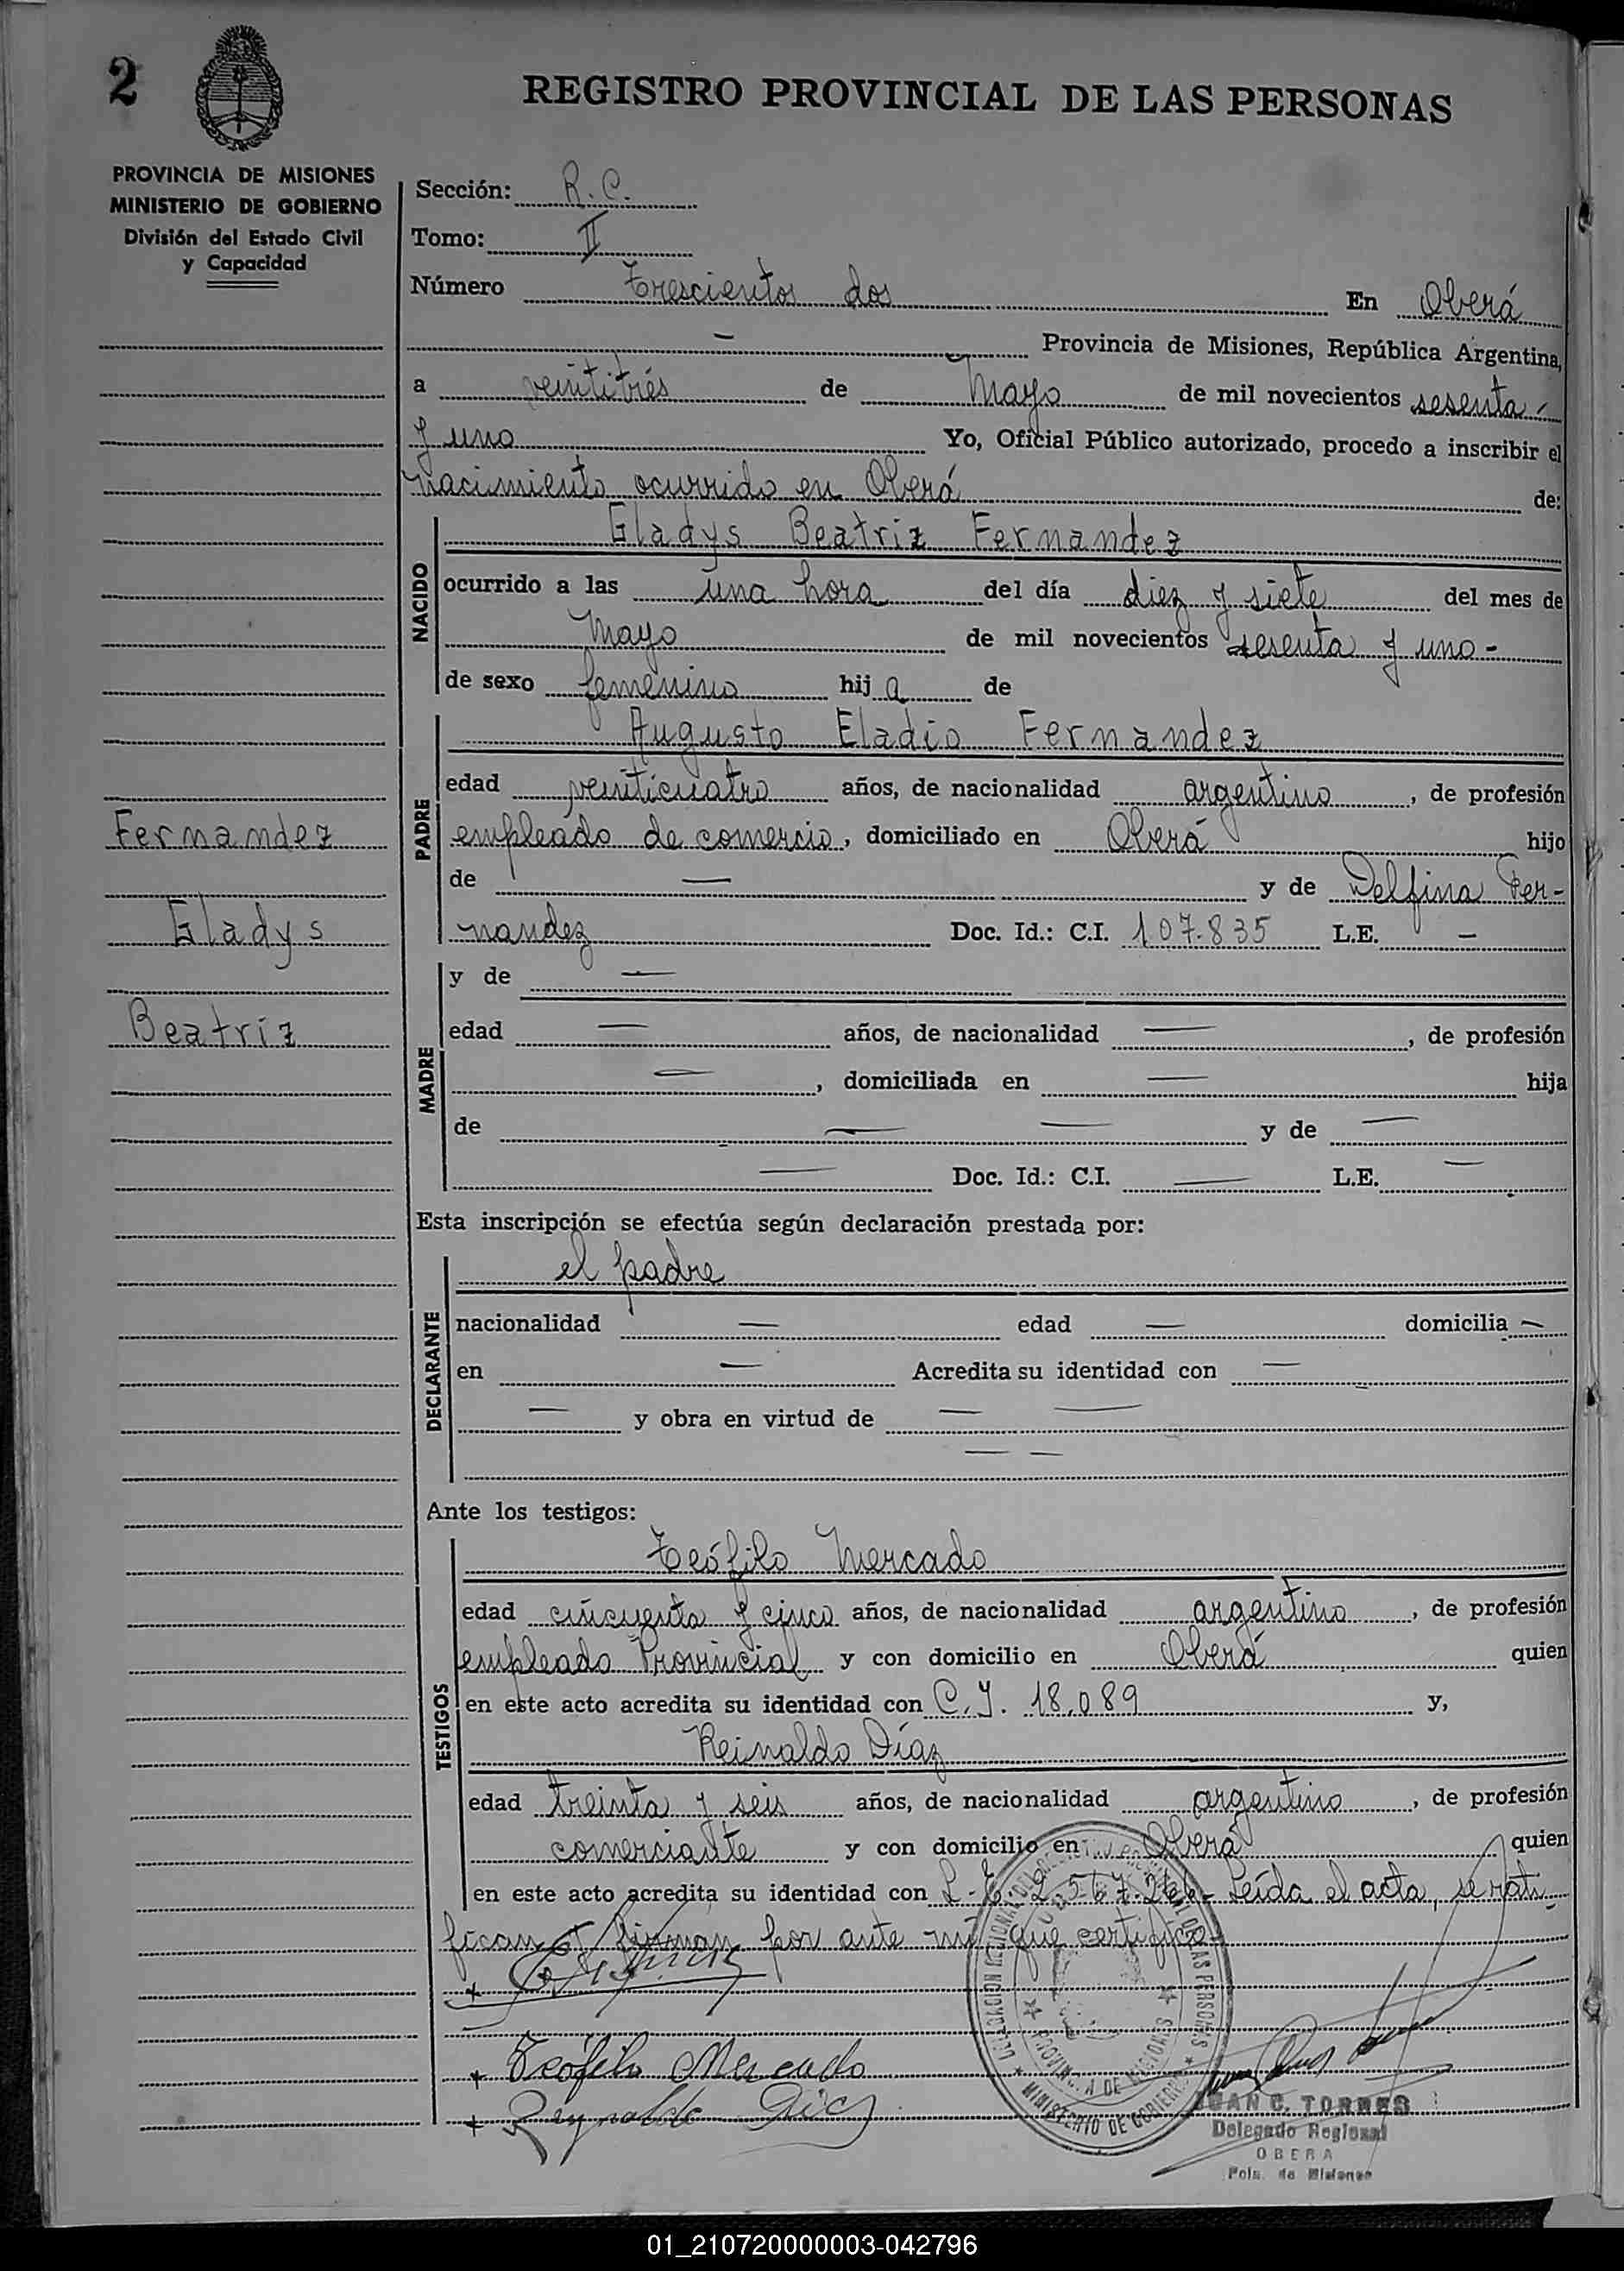 2
REGISTRO PROVINCIAL DE LAS PERSONAS
PROVINCIA DE MISIONES
MINISTERIO DE GOBIERNO
División del Estado Civil
y Capacidad
Sección: R. C.
Tomo: II
Número Trescientos dos En Oberá
— Provincia de Misiones, República Argentina,
a veintitrés de Mayo de mil novecientos sesenta
y uno Yo, Oficial Público autorizado, procedo a inscribir el
nacimiento ocurrido en Oberá de:
NACIDO
Gladys Beatriz Fernandez
ocurrido a las una hora del día diez y siete del mes de
Mayo de mil novecientos sesenta y uno -
de sexo femenino hij a de
PADRE
Augusto Eladio Fernandez
edad veinticuatro años, de nacionalidad argentino, de profesión
empleado de comercio, domiciliado en Oberá hijo
de — y de Delfina Fer-
nandez Doc. Id.: C.I. 107.835 L.E. —
Fernandez
Gladys
Beatriz
MADRE
y de —
edad — años, de nacionalidad —, de profesión
—, domiciliada en — hija
de — — y de —
— Doc. Id.: C.I. — L.E. —
Esta inscripción se efectúa según declaración prestada por:
DECLARANTE
el padre
nacionalidad — edad — domicilia —
en — Acredita su identidad con —
— y obra en virtud de — —
— —
Ante los testigos:
TESTIGOS
Teófilo Mercado
edad cincuenta y cinco años, de nacionalidad argentino, de profesión
empleado Provincial y con domicilio en Oberá quien
en este acto acredita su identidad con C.I. 18.089 y,
Reinaldo Díaz
edad treinta y seis años, de nacionalidad argentino, de profesión
comerciante y con domicilio en Oberá quien
en este acto acredita su identidad con L.E. Leída el acta, se rati
fican y firman por ante mí que certifico
+
+ Teófilo Mercado
+ Reynaldo Díaz
LAS PERSONAS
PROVINCIA DE MISIONES
MINISTERIO DE GOBIERNO
JUAN C. TORRES
Delegado Regional
OBERA
Pcia. de Misiones
01_210720000003-042796